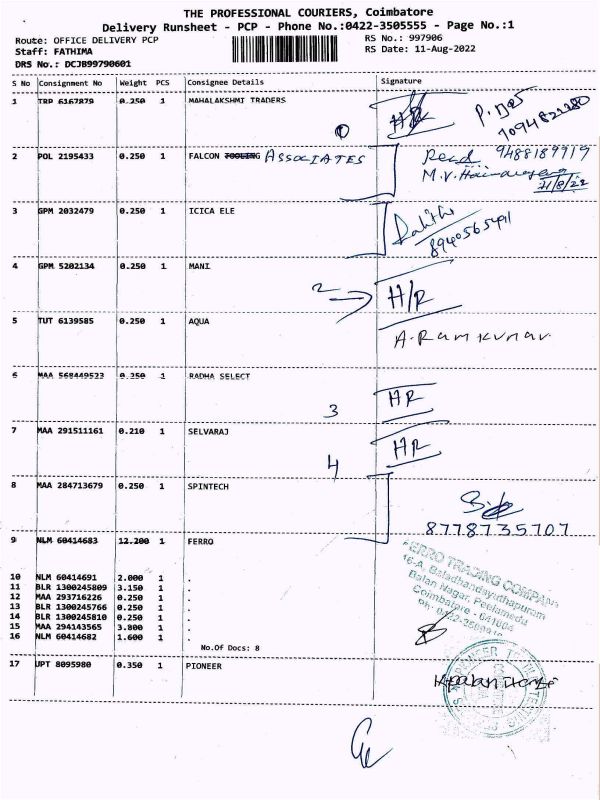 THE PROFESSIONAL COURIERS, Coimbatore
Delivery Runsheet - PCP - Phone No.:0422-3505555 - Page No.:1
Route: OFFICE DELIVERY PCP RS No.: 997906
Staff: FATHIMA RS Date: 11-Aug-2022
DRS No.: DCJB99790601
S No Consignment No Weight PCS Consignee Details Signature
1 TRP 6167879 0.250 1 MAHALAKSHMI TRADERS HR
7094821280
2 POL 2195433 0.250 1 FALCON TOOLING ASSOCIATES Recd 9488189919
11/8/22
3 GPM 2032479 0.250 1 ICICA ELE
8940565491
4 GPM 5202134 0.250 1 MANI 2 H/R
5 TUT 6139585 0.250 1 AQUA A. Ramkumar
6 MAA 568449523 0.250 1 RADHA SELECT 3 HR
7 MAA 291511161 0.210 1 SELVARAJ HR
4
8 MAA 284713679 0.250 1 SPINTECH
8778735707
9 NLM 60414683 12.200 1 FERRO
FERRO TRADING COMPANY
16-A, Baladhandayudhapuram
Balan Nagar, Peelamedu
Coimbatore - 641004
10 NLM 60414691 2.000 1 .
11 BLR 1300245809 3.150 1 .
12 MAA 293716226 0.250 1 .
13 BLR 1300245766 0.250 1 .
14 BLR 1300245810 0.250 1 .
15 MAA 294143565 3.800 1 .
16 NLM 60414682 1.600 1 .
No.Of Docs: 8
17 UPT 8095980 0.350 1 PIONEER